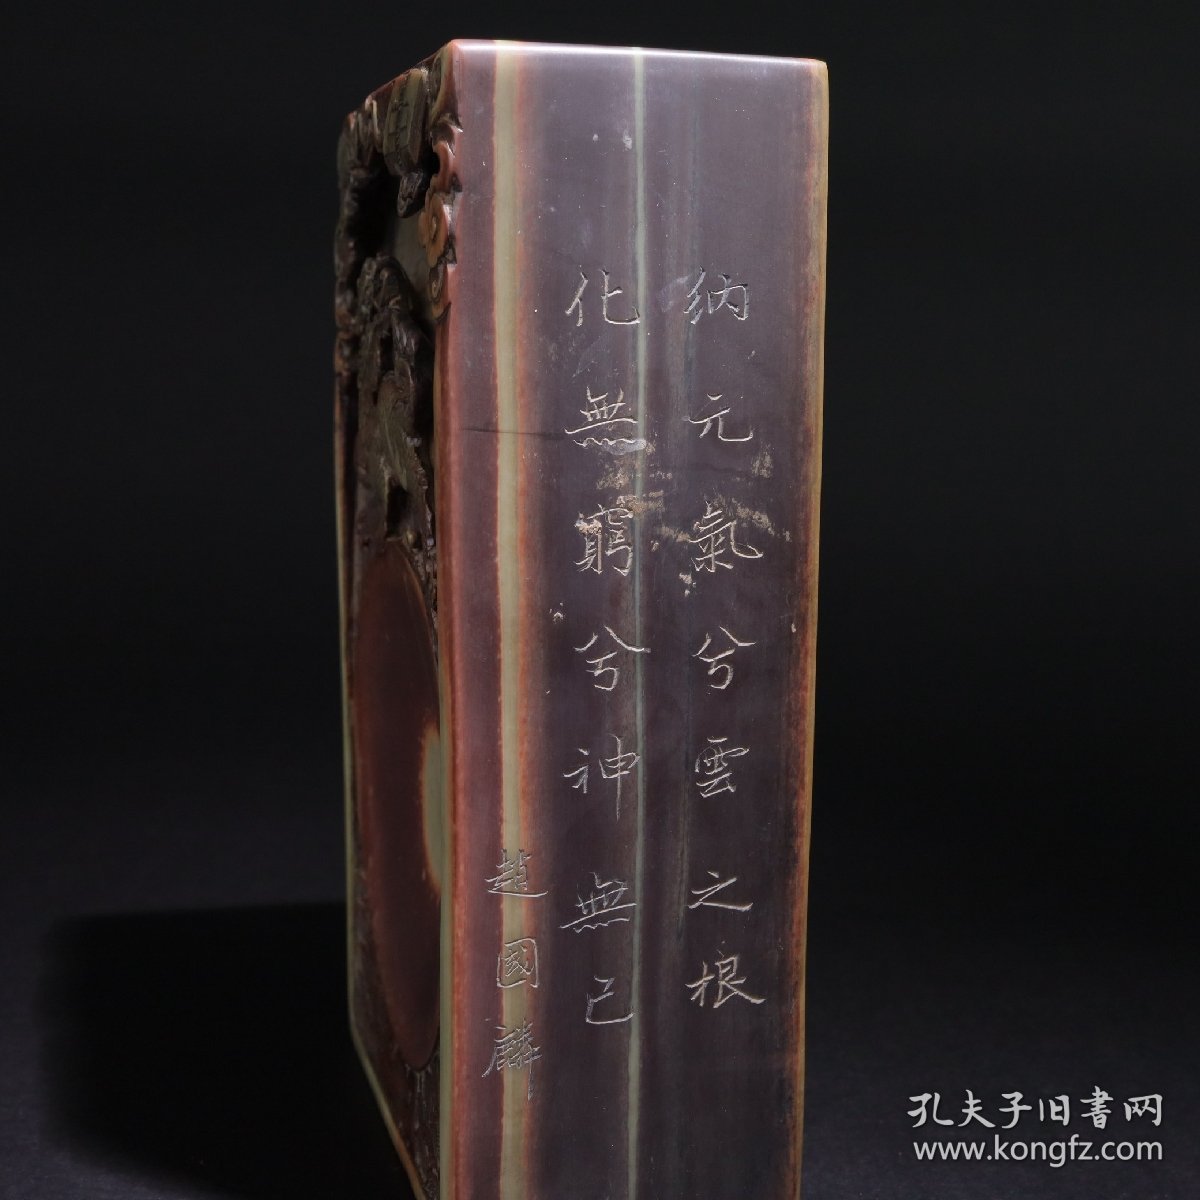 納元氣兮雲之根
化無窮兮神無已
趙國麟
孔夫子旧書网
www.kongfz.com